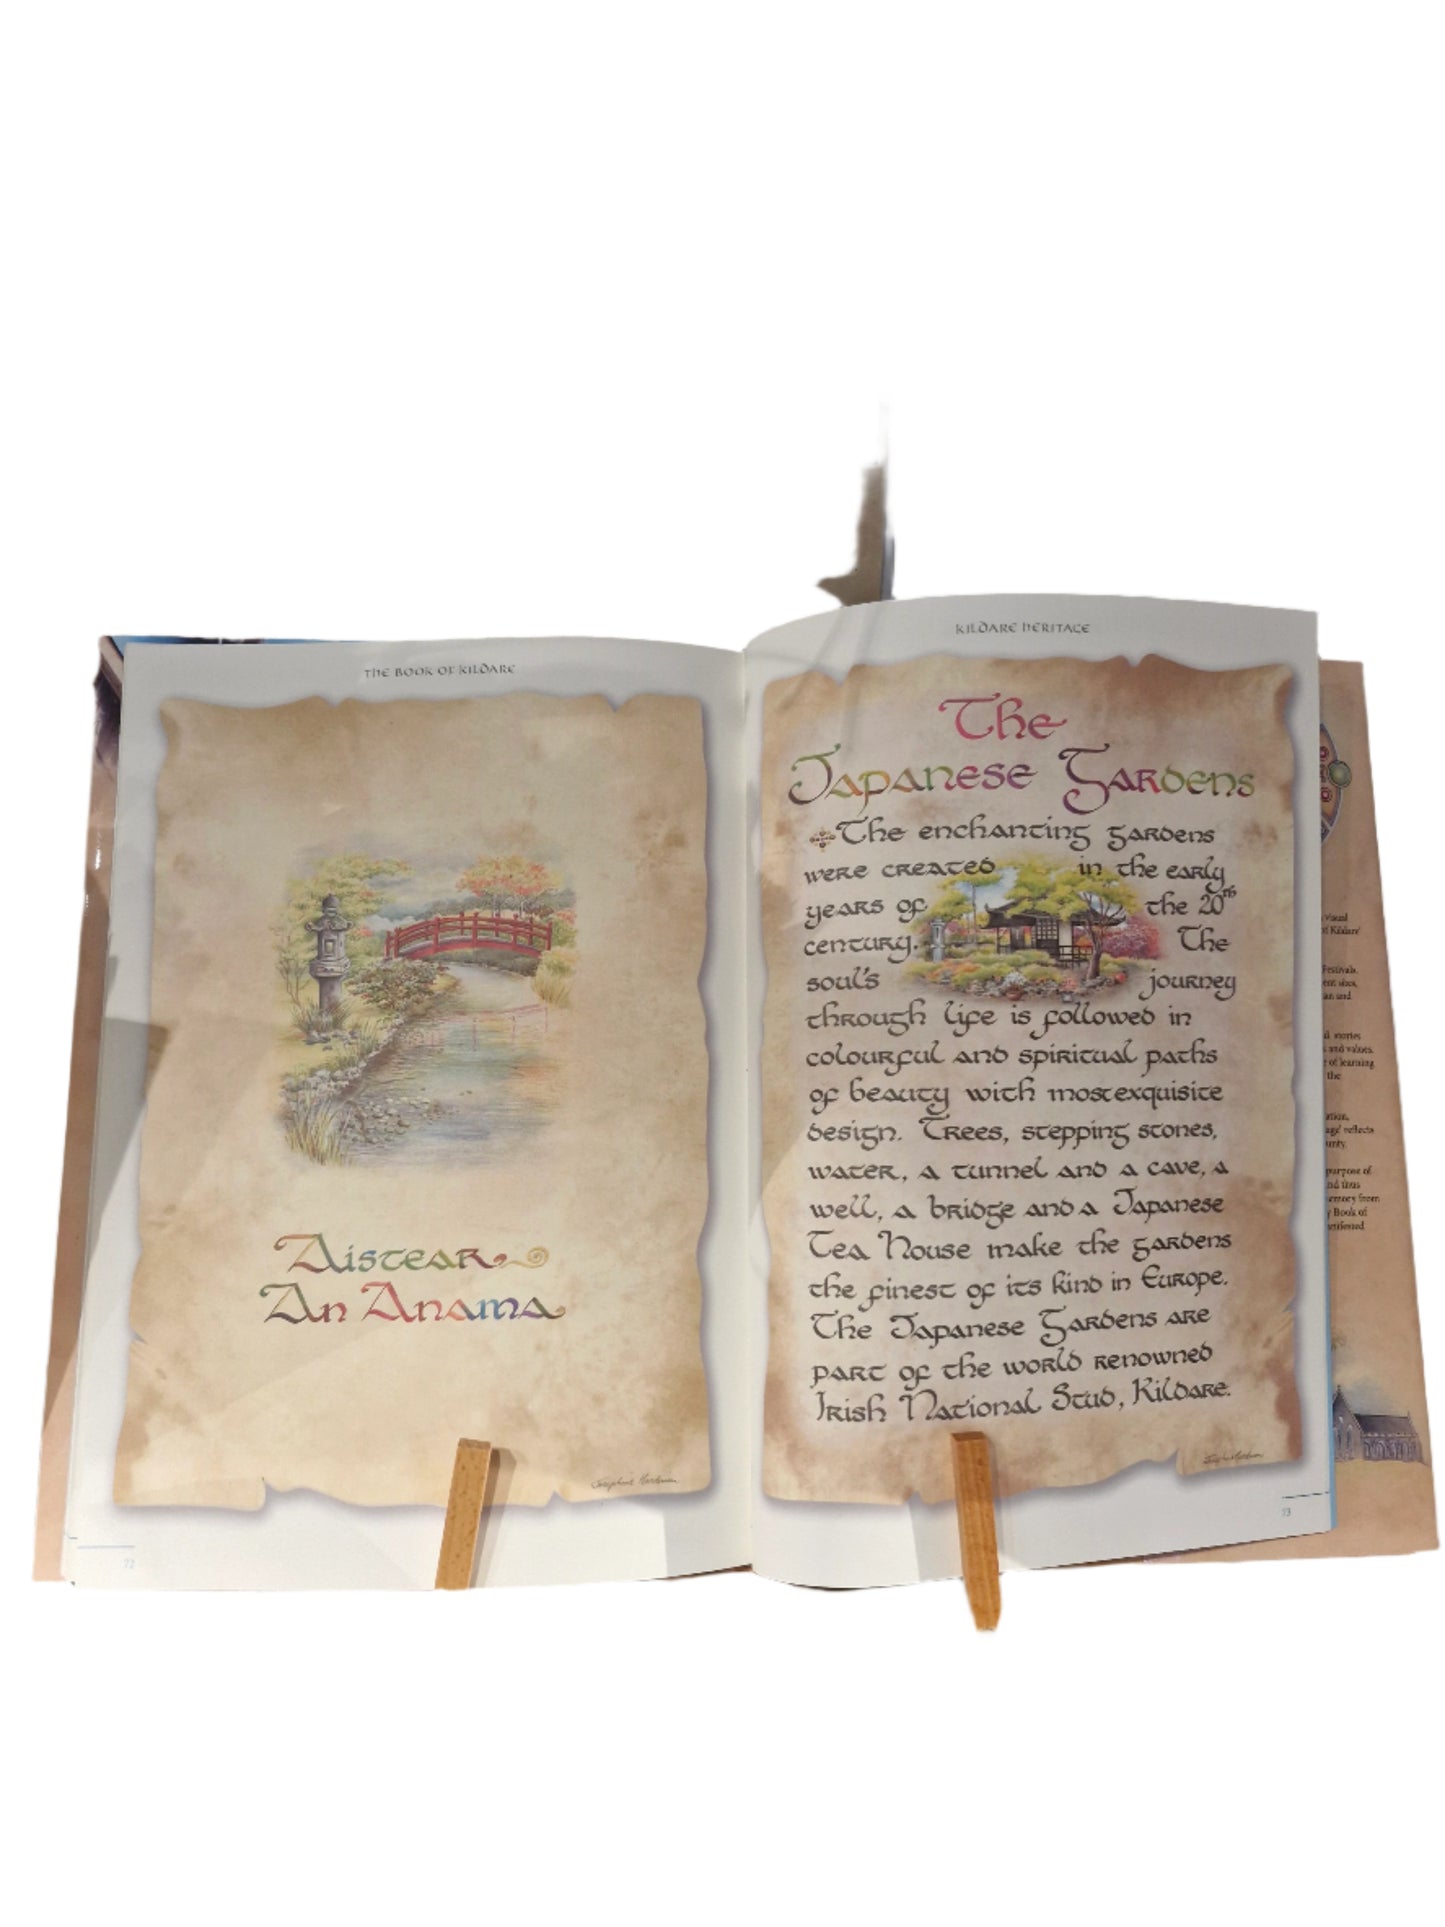 THE BOOK OF KILDARE
Aistear
An Anama
Josephine Hardiman
72
KILDARE HERITAGE
The
Japanese Gardens
The enchanting gardens
were created in the early
years of the 20th
century. The
soul's journey
through life is followed in
colourful and spiritual paths
of beauty with most exquisite
design. Trees, stepping stones,
water, a tunnel and a cave, a
well, a bridge and a Japanese
Tea House make the gardens
the finest of its kind in Europe.
The Japanese Gardens are
part of the world renowned
Irish National Stud, Kildare.
Josephine Hardiman
73
Visual
of Kildare'
Festivals,
sites,
and
stories
and values.
of learning
the
reflects
purpose of
thus
from
Book of